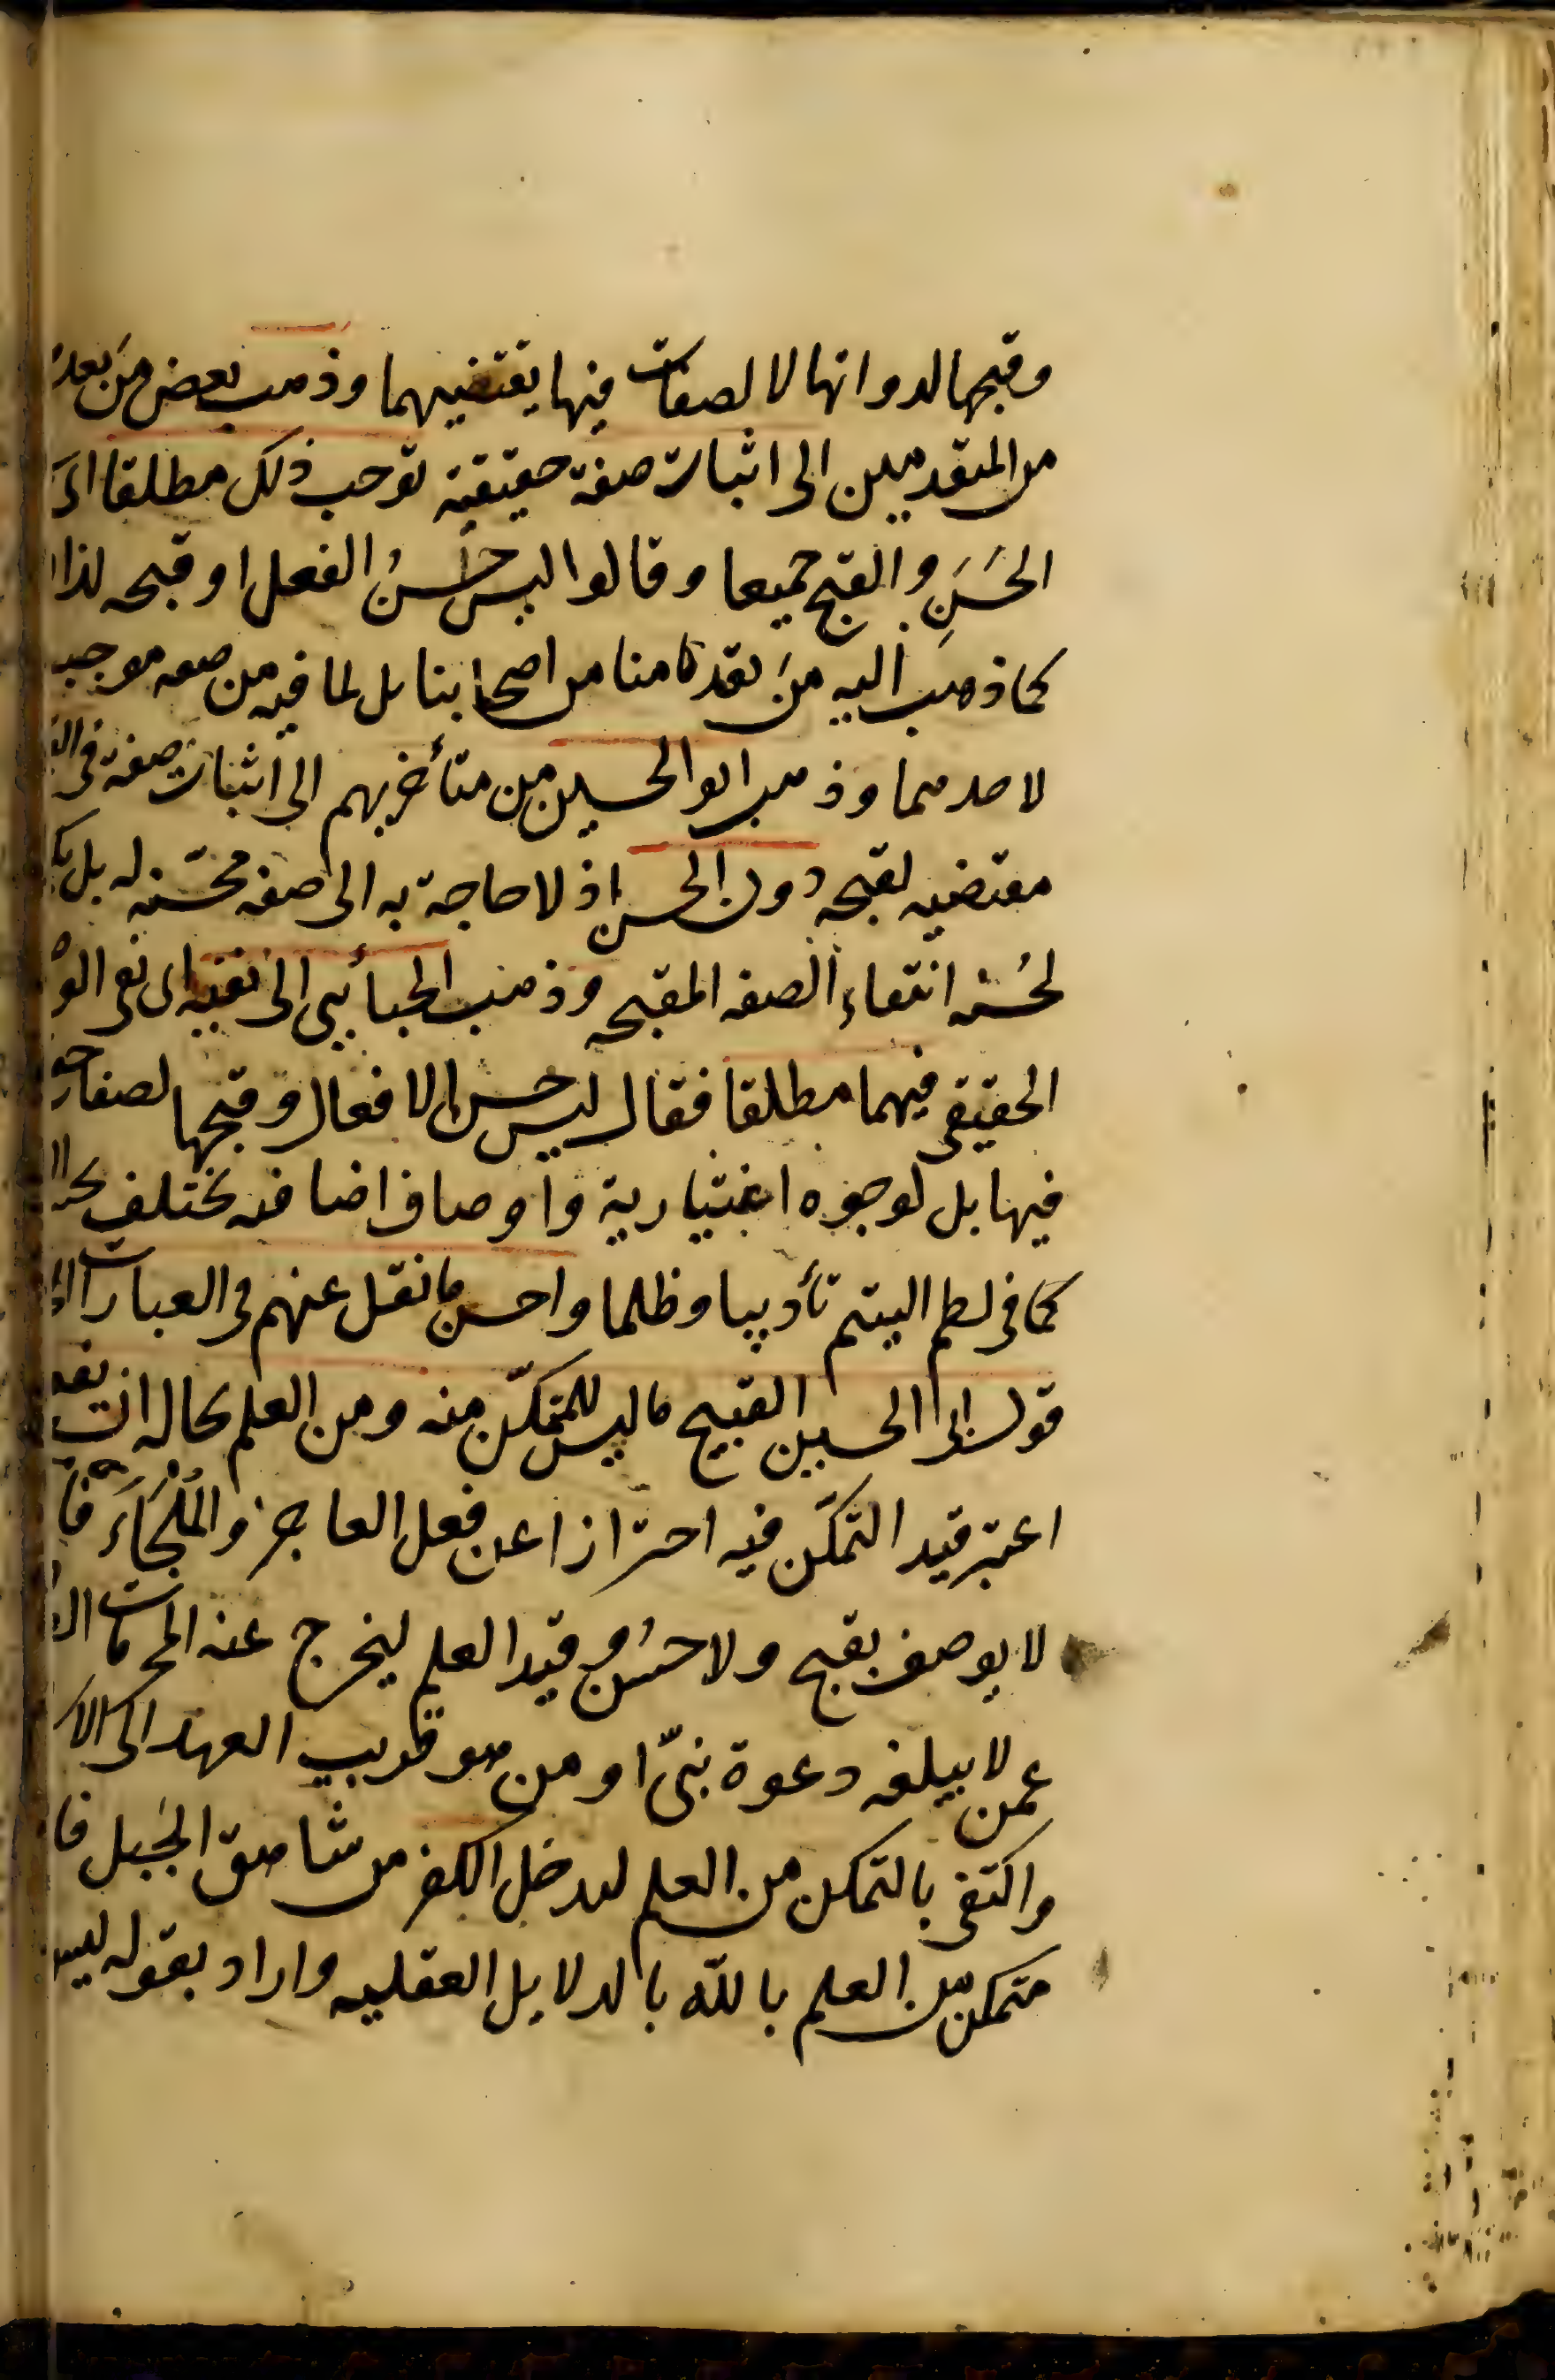 وقبحها لذواتها لا لصفات فيها يقتضيهما وذهب بعض من بعد
من المتقدمين الى اثبات صفة حقيقية توجب ذلك مطلقا اى
الحَسَنِ والقبيح جميعا وقالوا ليس حُسنُ الفعل او قبحه لذا
كما ذهب اليه مَن تقدمنا من اصحابنا بل لما فيه من صفه موجبه
لاحدهما وذهب ابو الحسين من متأخريهم الى اثبات صفة فى
مقتضيه لقبحه دون الحسن اذ لا حاجة به الى صفه محسّنه له بل
لحُسنه انتفاء الصفه المقبحه وذهب الجبائى الى نفيه اى نفى
الحقيقى فيهما مطلقا فقال ليس حسن الافعال وقبحها لصفات
فيها بل لوجوه اعتبارية واوصاف اضافيه تختلف
كما فى لطم اليتيم تأديبا وظلما واحسن ما نقل عنهم فى العبارات
قول ابى الحسين القبيح ما ليس للمتمكّن منه ومن العلم بحاله ان
اعتبر قيد التمكّن فيه احترازا عن فعل العاجز والمُلْجَاَء
لا يوصف بقبح ولا حُسن وقيد العلم ليخرج عنه المحرمات
عمن لا يبلغه دعوة نبىّ او من هو قريب العهد
واكتفى بالتمكن من العلم ليدخل الكفر من شاهق الجَبل
متمكن من العلم بالله بالدلايل العقليه واراد بقوله ليس